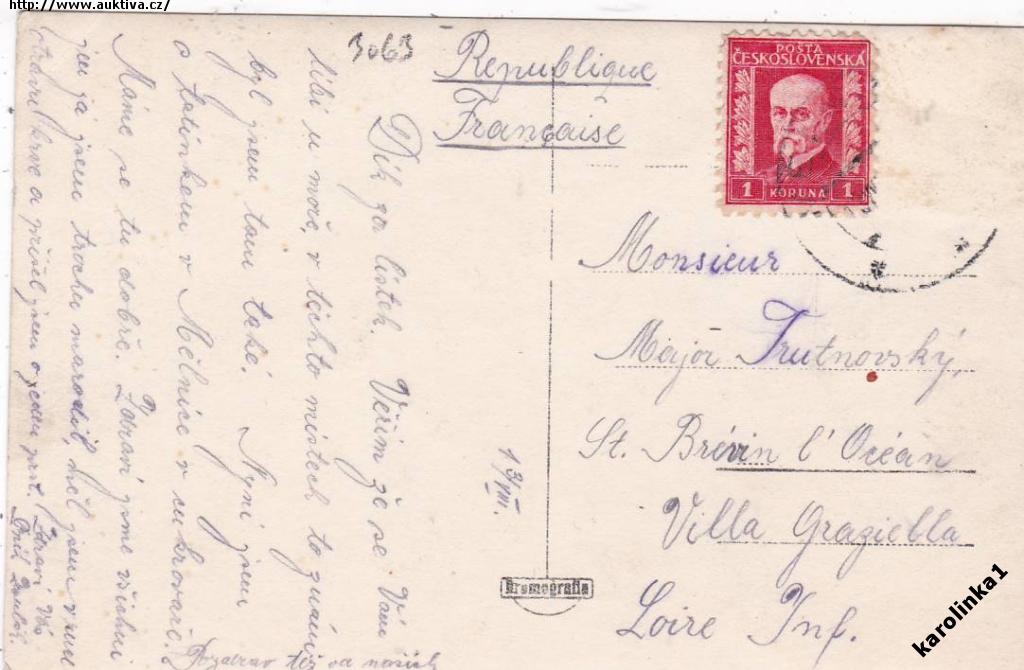 http://www.auktiva.cz/
3063
République
Française
POŠTA
ČESKOSLOVENSKÁ
1 KORUNA 1
Monsieur
Major Trutnovský,
St. Brévin l'Océan
Villa Graziella
Loire Inf.
13/VIII.
Bromografia
Dík za lístek. Věřím že se Vám
líbí u moře, v těchto místech to znám,
byl jsem tam také. Nyní jsem
s Latinkem v Mělnice v cukrovaře.
Máme se tu dobře. Zdraví jsme všichni
jen já jsem trochu marodil, měl jsem v
krve a přišel jsem o jeden prst. Zdraví Vás
Pozdrav též od našich
karolinka1